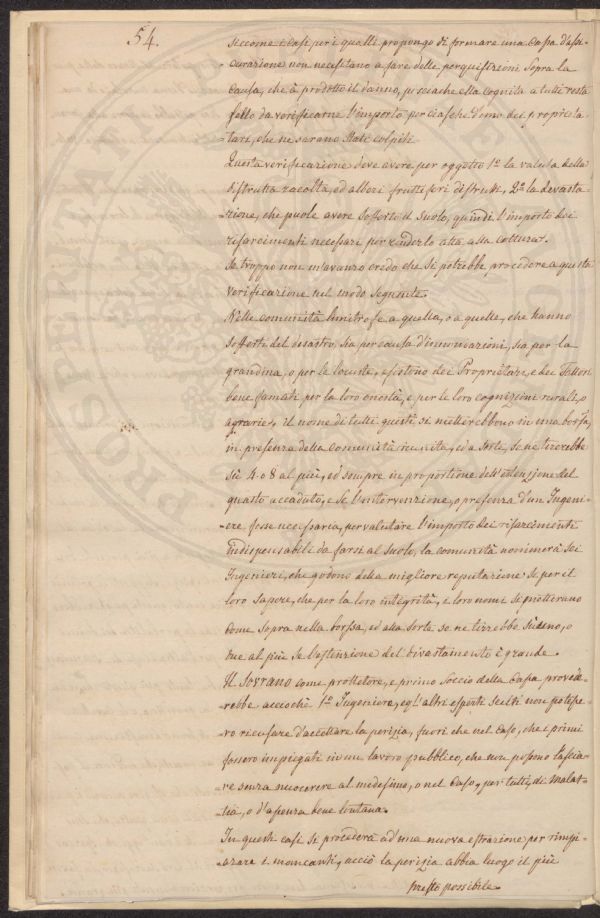 54.
siccome i casi per i qualli propongo di formare una Cassa d'assi-
-curazione non necessitano a fare delle perquisizioni sopra la
causa, che à prodotto il danno, posciachè ella cognita a tutti resta
sollo da verificarne l'importo per ciascheduno dei proprieta-
-tari, che ne sarano state colpiti.
Questa verificazione deve avere per oggetto 1º la valuta della
distrutta racolta, ed alberi fruttiferi distrutti, 2º la devasta-
-zione, che puole avere sofferto il suolo, quindi l'importo dei
risarcimenti necessari per renderlo atto alla colttura.
Se troppo non m'avanzo credo che si potrebbe procedere a questa
verificazione nel modo seguente.
Nelle comunità limitrofe a quella, o a quelle, che hanno
sofferti del disastro, sia per causa d'innondazioni, sia per la
grandina, o per le locuste, esistono dei Proprietari, e dei Fattori
bene famati per la loro onestà, e per le loro cognizioni rurali, o
agrarie, il nome di tutti questi si metterebbono in una borsa,
in presenza della comunità riunita, ed a sorte, se ne tirerebbe
sù 4. o 8 al più, ed sempre in proportione dell'estenzione del
guasto accaduto, e sè l'intervenzione, o presenza d'un Ingeni-
-ere fosse necessaria, per valutare l'importo dei risarcimenti
indispensabili da farsi al suolo, la comunità nominerà sei
Ingenieri, che godono della migliore reputazione se per il
loro sapere, che per la loro integrità, e loro nomi si metterano
come sopra nella borssa, ed alla sorte se ne tirrebbe sù uno, o
due al più se l'estenzione del divastamento è grande.
Il Sovrano come prottetore, e primo Soccio della Cassa proved-
-rebbe acciochè 1º Ingeniere, egl'altri esperti scielti non potesse-
-ro ricusare d'accettare la perizia, fuori che nel caso, che i primi
fossero impiegati in un lavoro pubblico, che non possono lascia-
-re senza nuocerere al medesimo, o nel caso, per tutti, di malat-
-tia, o d'assenza bene lontana.
In questi casi si procederà ad una nuova estrazione per rimpi-
-azare i mancanti, acciò la perizia abbia luogo il più
presto possibile.